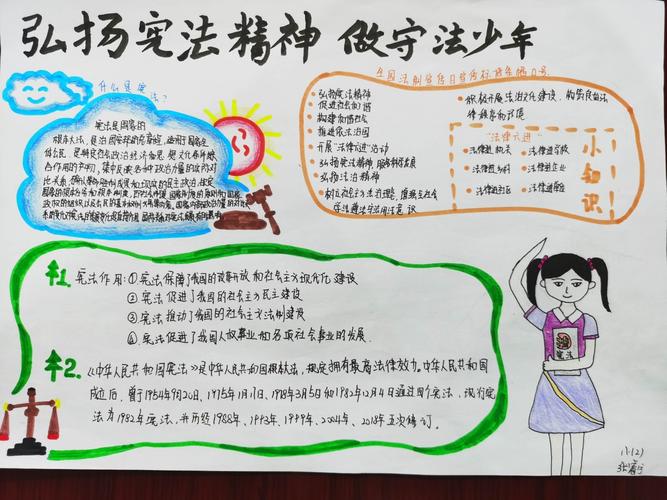 弘扬宪法精神 做守法少年
什么是宪法?
宪法是国家的
根本大法,是治国安邦的总章程,适用于国家全
体公民,是特定社会政治经济和思想文化条件综
合作用的产物,集中反映各种政治力量的实际对
比关系,确认革命胜利成果和现实的民主政治,规定
国家的根本任务和根本制度,
全国法制宣传日宣传标语
弘扬宪法精神
促进社会和谐
构建和谐社会
推进依法治国
开展"法律六进"活动
弘扬宪法精神,服务科学发展
弘扬法治精神
树立社会主义法治理念,增强全社会
学法遵法守法用法意识
积极开展法治文化建设,构筑良好法
律秩序和环境
"法律六进"
法律进机关
法律进乡村
法律进社区
法律进学校
法律进企业
法律进单位
小知识
1. 宪法作用:①宪法保障了我国的改革开放和社会主义现代化建设
② 宪法促进了我国的社会主义民主建设
③ 宪法推动了我国的社会主义法制建设
④ 宪法促进了我国人权事业和各项社会事业的发展.
2. 《中华人民共和国宪法》是中华人民共和国根本大法,规定拥有最高法律效力.中华人民共和国
成立后,曾于1954年9月20日、1975年1月17日、1978年3月5日和1982年12月4日通过四个宪法,现行宪
法为1982年宪法,并历经1988年、1993年、1999年、2004年、2018年五次修订。
宪法